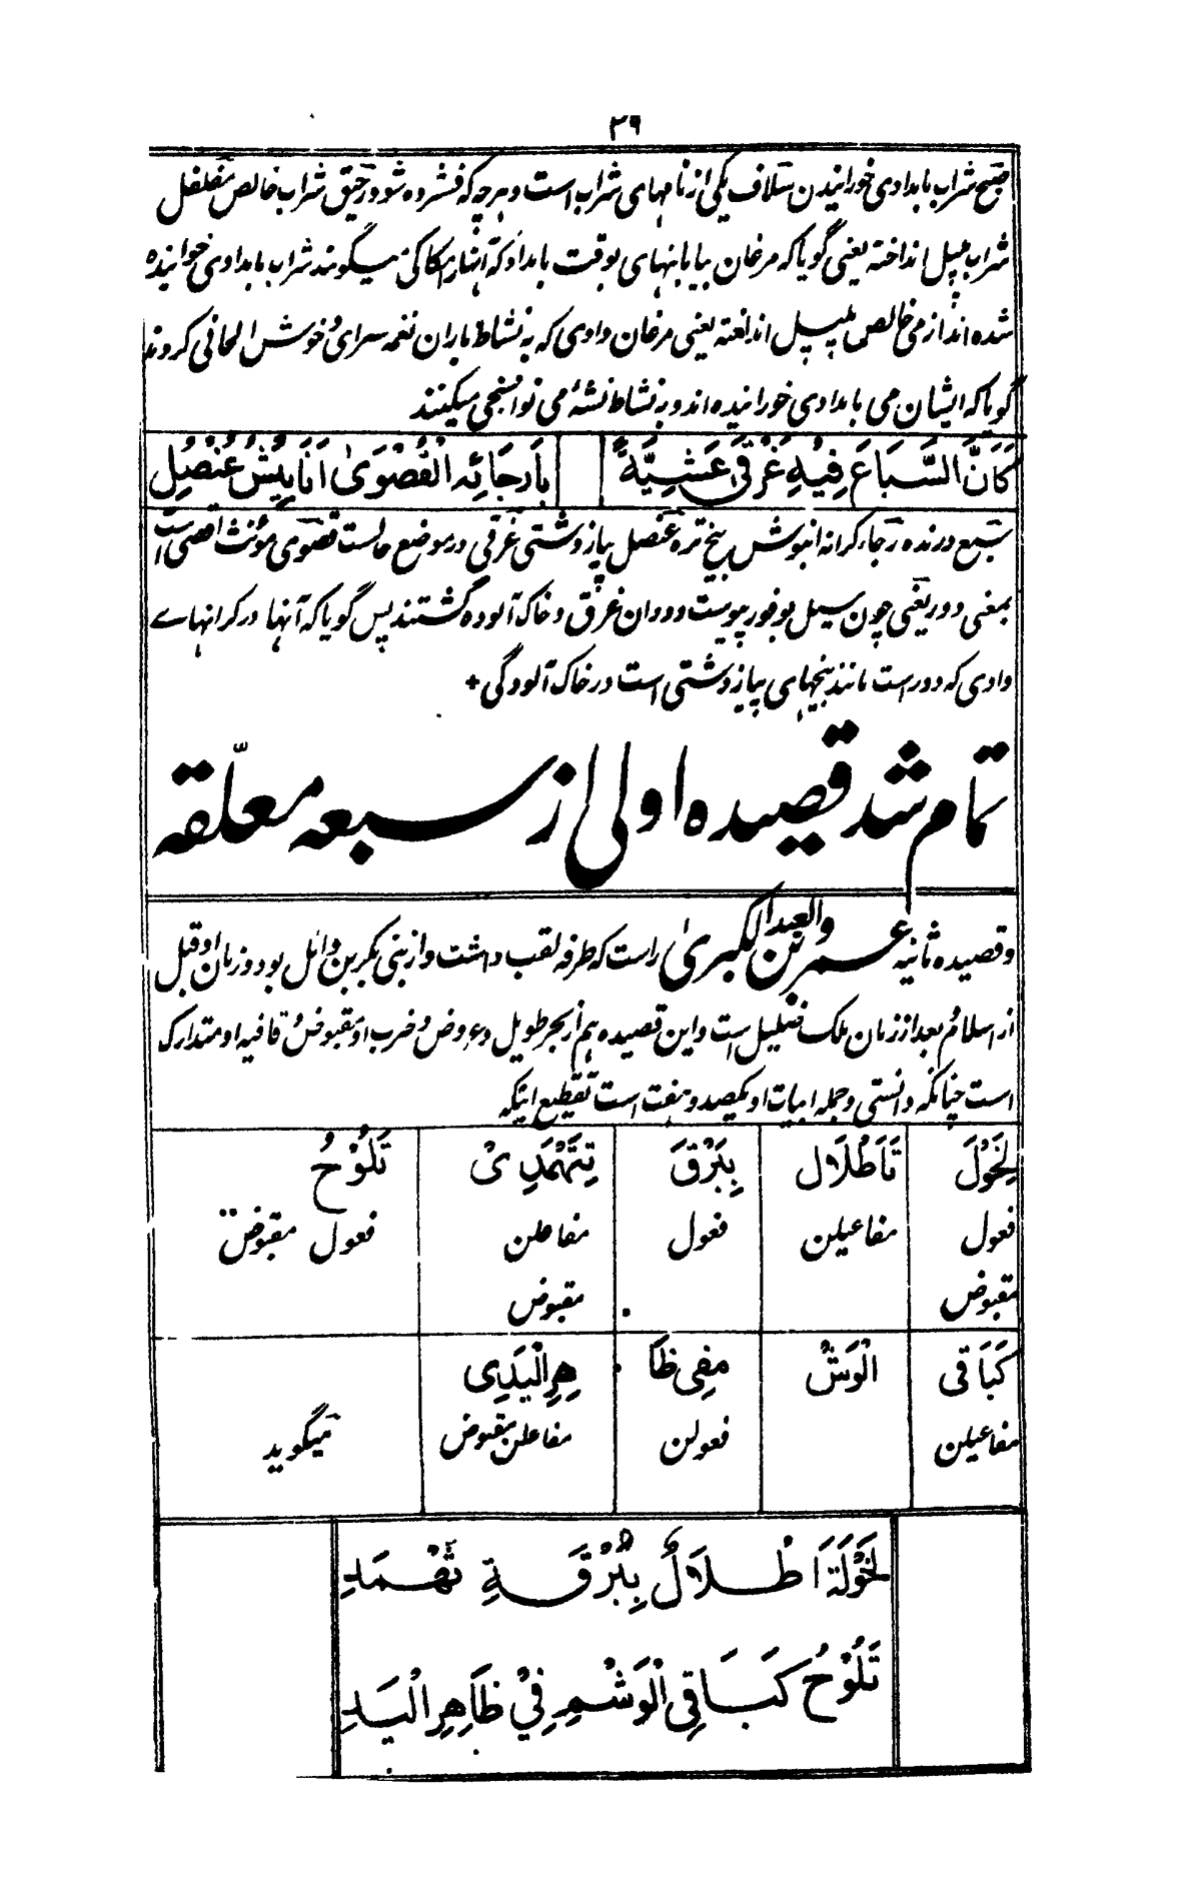 ۳۹
صبح شراب بامدادی خورانیدن سلاف یکی از نامهای شراب است و هرچه که فشرده شود رحیق شراب خالص مفلفل
شراب پلپل انداخته یعنی گویا که مرغان بیابانهای بوقت بامداد که آنها را مکاکی میگویند شراب بامدادی خوانیده
شده اند از می خالص پلپل انداخته یعنی مرغان وادی که به نشاط باران نغمه سرای و خوش الحانی کردند
گویا که ایشان می بامدادی خورانیده اند و به نشاط نشهٔ می نوا سنجی میکنند
كَأَنَّ السَّبَاعَ فِيْهِ غَرْقَى عَشِيَّةً
بِاَرجَائِه الْقُصْوَىٰ اَنَابِيْشُ عُنْصُلِ
سبع درنده رجاء کرانه انبوش بیخ تره عنصل پیاز دشتی غرقی در موضع حالست قصوی مؤنث اقصی است
بمعنی دور یعنی چون سیل بوفور پیوست و ددان غرق و خاک آلوده گشتند پس گویا که آنها در کرانهاے
وادی که دور است مانند بیخهای پیاز دشتی است در خاک آلودگی +
تمام شد قصیده اولی از سبعه معلّقه
و قصیده ثانیه عمرو بن العبد البکری راست که طرفه لقب داشت و از بنی بکر بن وائل بود و زمان او قبل
از اسلام و بعد از زمان ملک ضلیل است و این قصیده هم از بحر طویل و عروض و ضرب او مقبوض و قافیه او متدارک
است چنانکه دانستی و جمله ابیات او یکصد و هفت است تقطیع اینکه
لِخَوْلَ تَاَطْلَال بِبَرْقَ تِتَهْمَدِیْ تَلُوْحُ
فعول مفاعیلن فعول مفاعلن فعول مقبوض
مقبوض مقبوض
كَبَاقی الْوَشْ مِفِی ظَا هِرِالْیَدِی
مفاعیلن فعولن مفاعلن مقبوض میگوید
لِخَوْلَةَ اَطْلَالٌ بِبُرْقَةِ ثَهْمَدِ
تَلُوْحُ كَبَاقِي الْوَشْمِ فِيْ ظَاهِرِ الْيَدِ